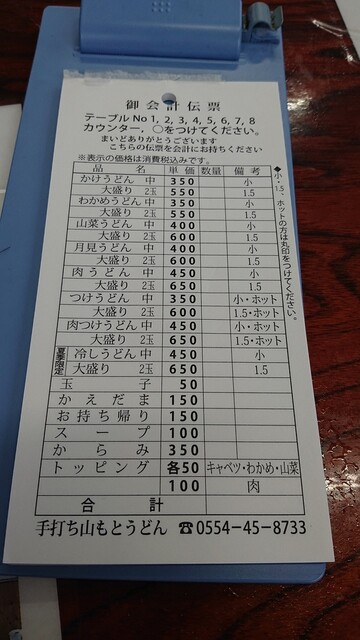 御会計伝票
テーブルNo 1, 2, 3, 4, 5, 6, 7, 8
カウンター, ○をつけてください。
まいどありがとうございます
こちらの伝票を会計にお持ちください
※表示の価格は消費税込みです。
品 名 単価 数量 備考
かけうどん 中 350 小
大盛り 2玉 550 1.5
わかめうどん 中 350 小
大盛り 2玉 550 1.5
山菜うどん 中 400 小
大盛り 2玉 600 1.5
月見うどん 中 400 小
大盛り 2玉 600 1.5
肉うどん 中 450 小
大盛り 2玉 650 1.5
つけうどん 中 350 小・ホット
大盛り 2玉 600 1.5・ホット
肉つけうどん 中 450 小・ホット
大盛り 2玉 650 1.5・ホット
夏季限定
冷しうどん 中 450 小
大盛り 2玉 650 1.5
玉子 50
かえだま 150
お持ち帰り 150
スープ 100
からみ 350
トッピング 各50 キャベツ・わかめ・山菜
100 肉
合計
◆小・1.5・ホットの方は丸印をつけてください。
手打ち山もとうどん ☎0554-45-8733